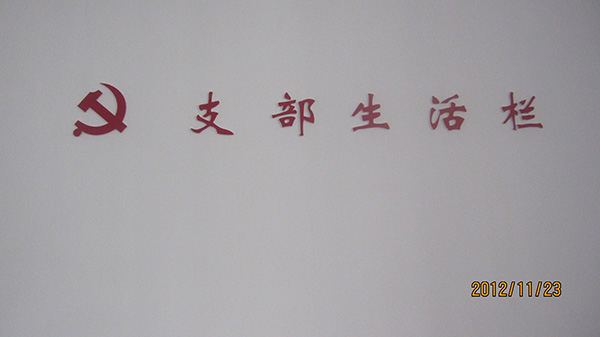 支部生活栏
2012/11/23